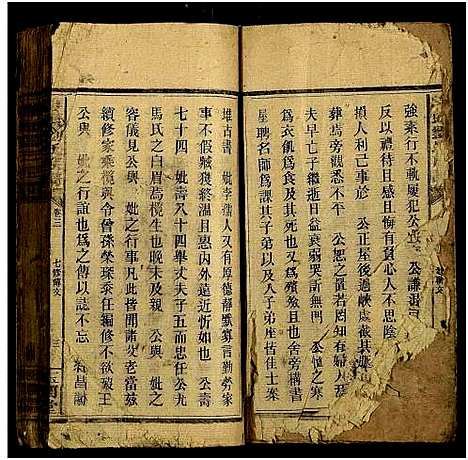 強索行不軌屢犯公
反以禮待日感且悔有負心人不思陰
損人利己事於 公正屋後過峽處截其
葬焉旁觀悉不平 公恕之置若罔知有婦人
夫早亡子繼逝日益衰弱哭訴無門 公憐之
為衣飢為食及其死也又為殯殮且舍旁構書
屋聘名師為課其子弟以及人子弟座皆佳士案
堆古書 妣李孺人又有厚德靜默寡言勤勞家
事不假臧獲終溫且惠內外遠近忻如也 公壽
七十四 妣壽八十四舉丈夫子五而悉任公尤
馬氏之白眉焉欖生也晚未及親 公與 妣之
容儀見公與 妣之行事凡此皆聞諸父老當茲
續修家乘欖與令曾孫榮琛忝任編修不欲冺王
公與 妣之行誼也爲之傳以誌不忘
卷三
七修傳文